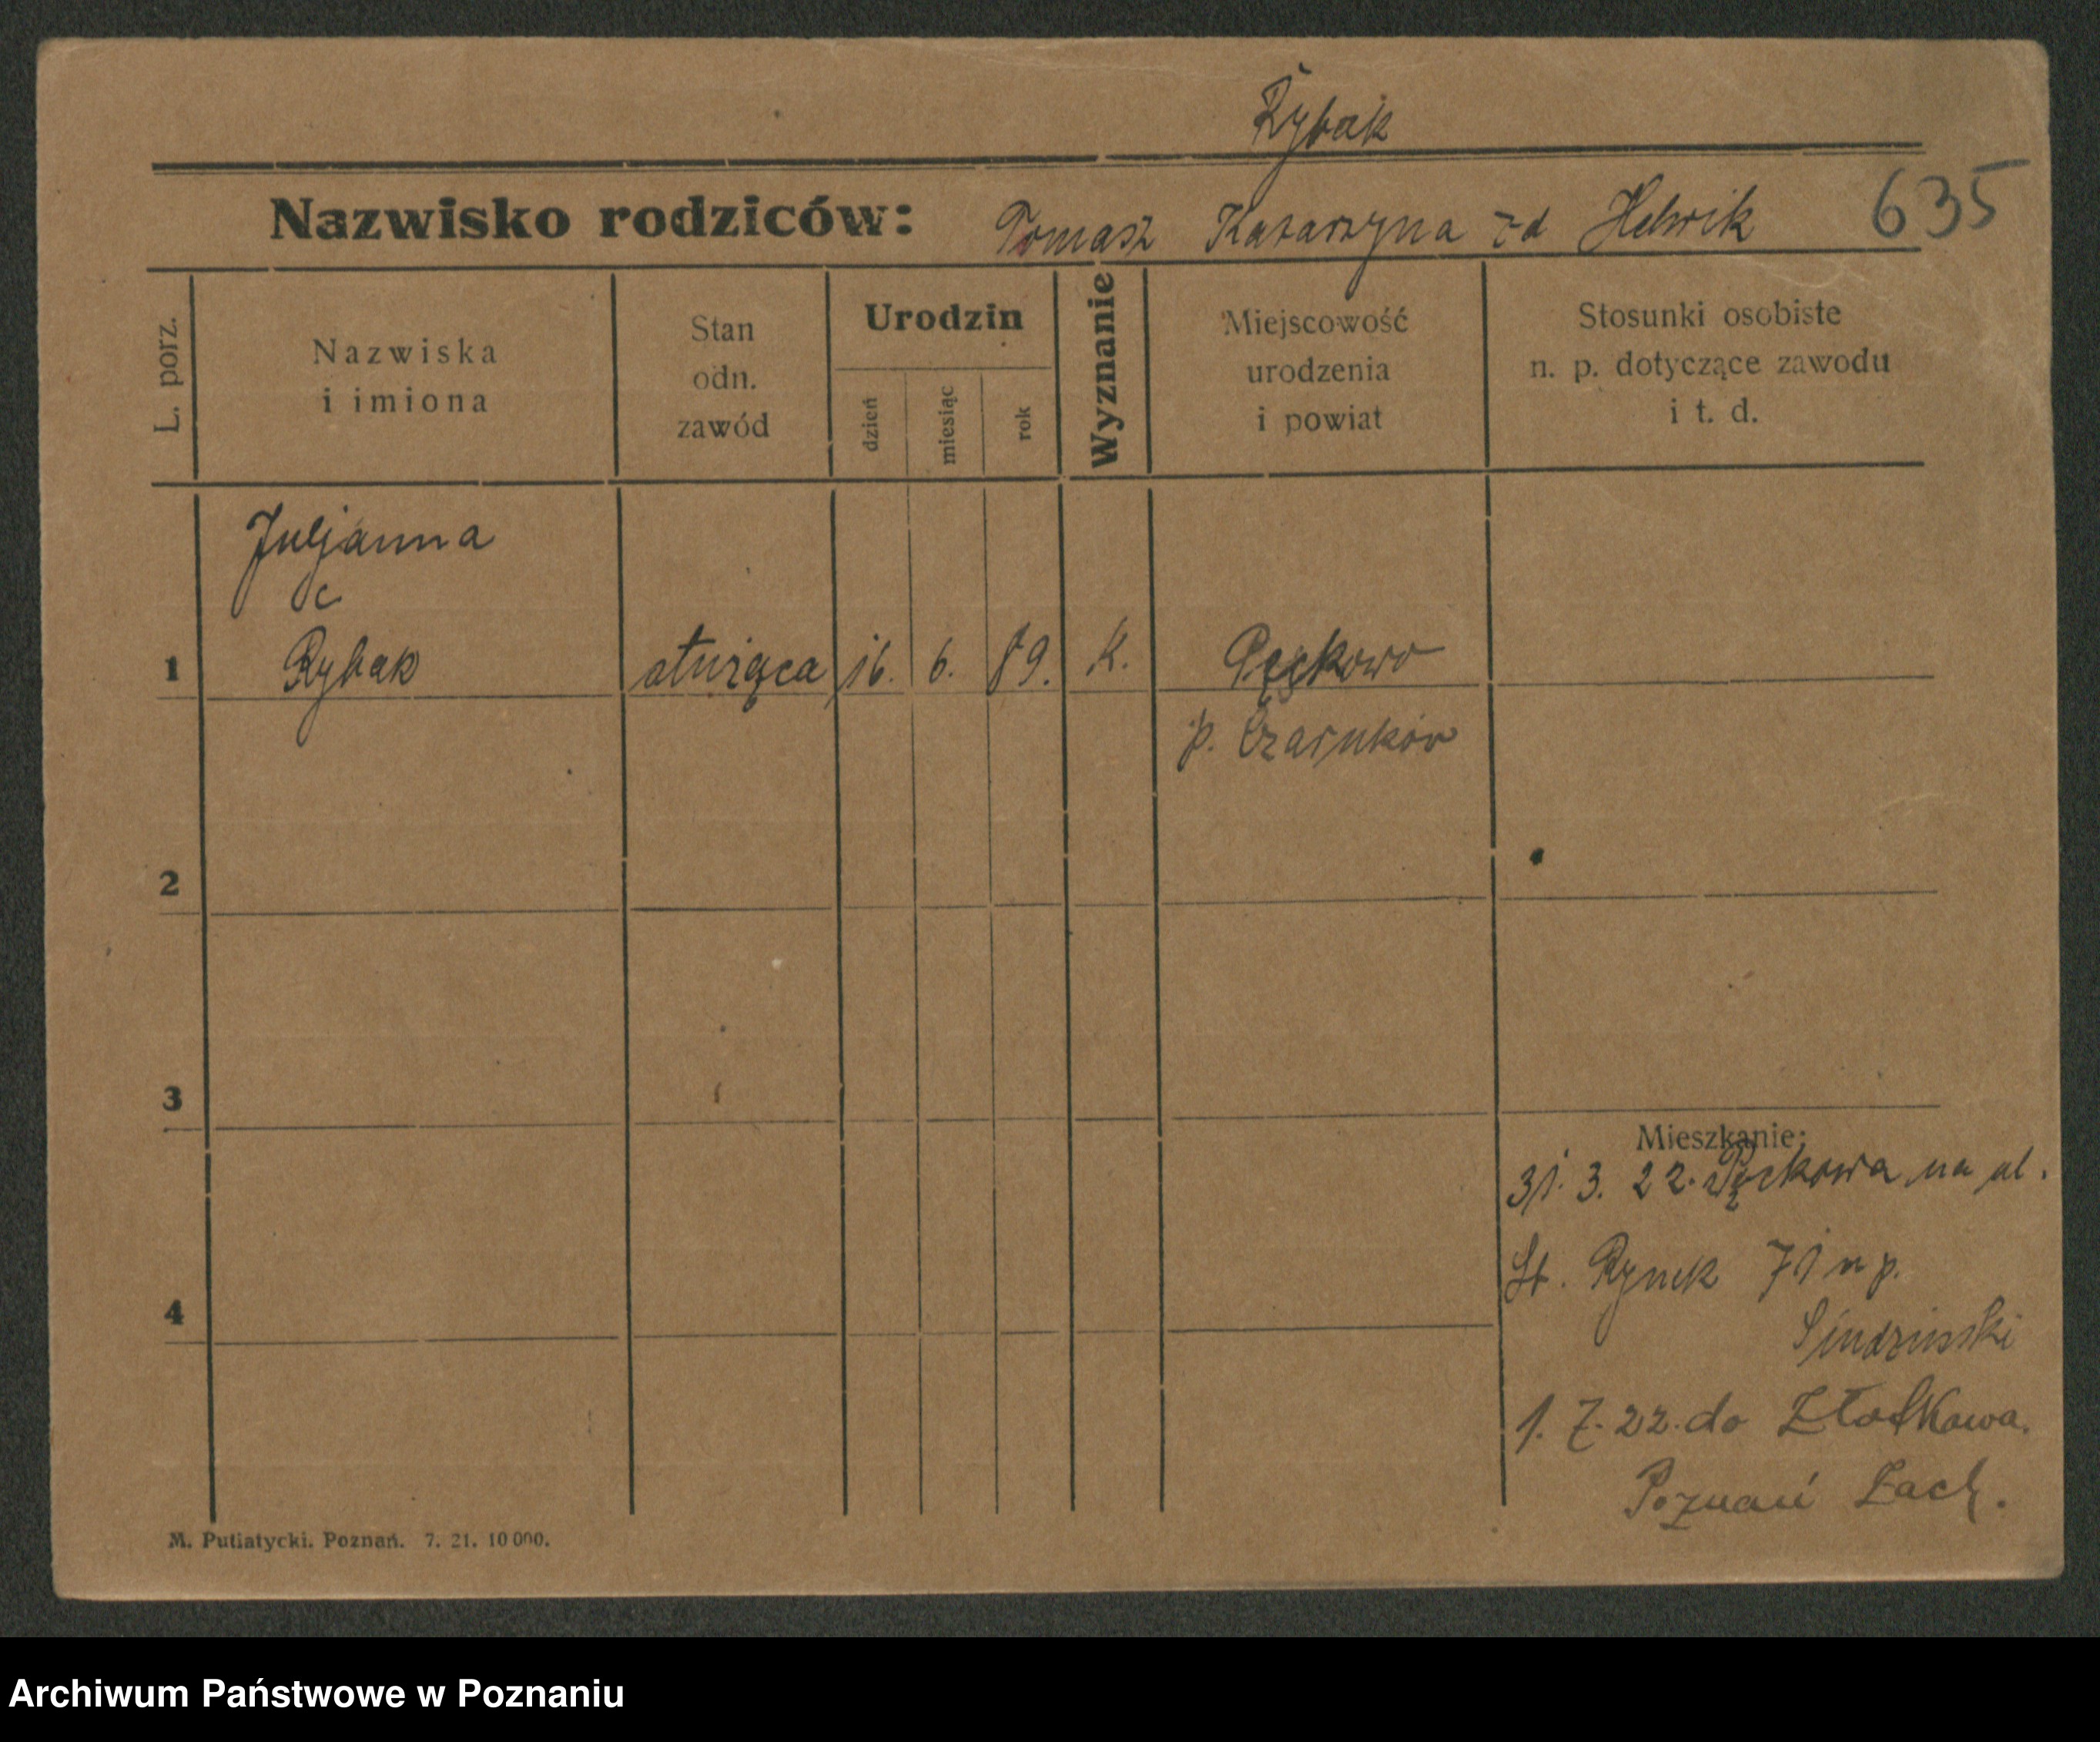 Rybak
Nazwisko rodziców: Tomasz Katarzyna zd 635
L. porz.
Nazwiska
i imiona
Stan
odn.
zawód
Urodzin
dzień
miesiąc
rok
Wyznanie
Miejscowość
urodzenia
i powiat
Stosunki osobiste
n. p. dotyczące zawodu
i t. d.
Juljanna
1 Rybak służąca 16. 6. 89. K. Pęckowo
p. Czarnków
2
3
Mieszkanie:
31. 3. 22. z Pęckowa na ul.
St. Rynek 71 u p.
4
1. 7. 22. do Złotkowa.
Poznań Zach.
M. Putiatycki. Poznań. 7. 21. 10 000.
Archiwum Państwowe w Poznaniu